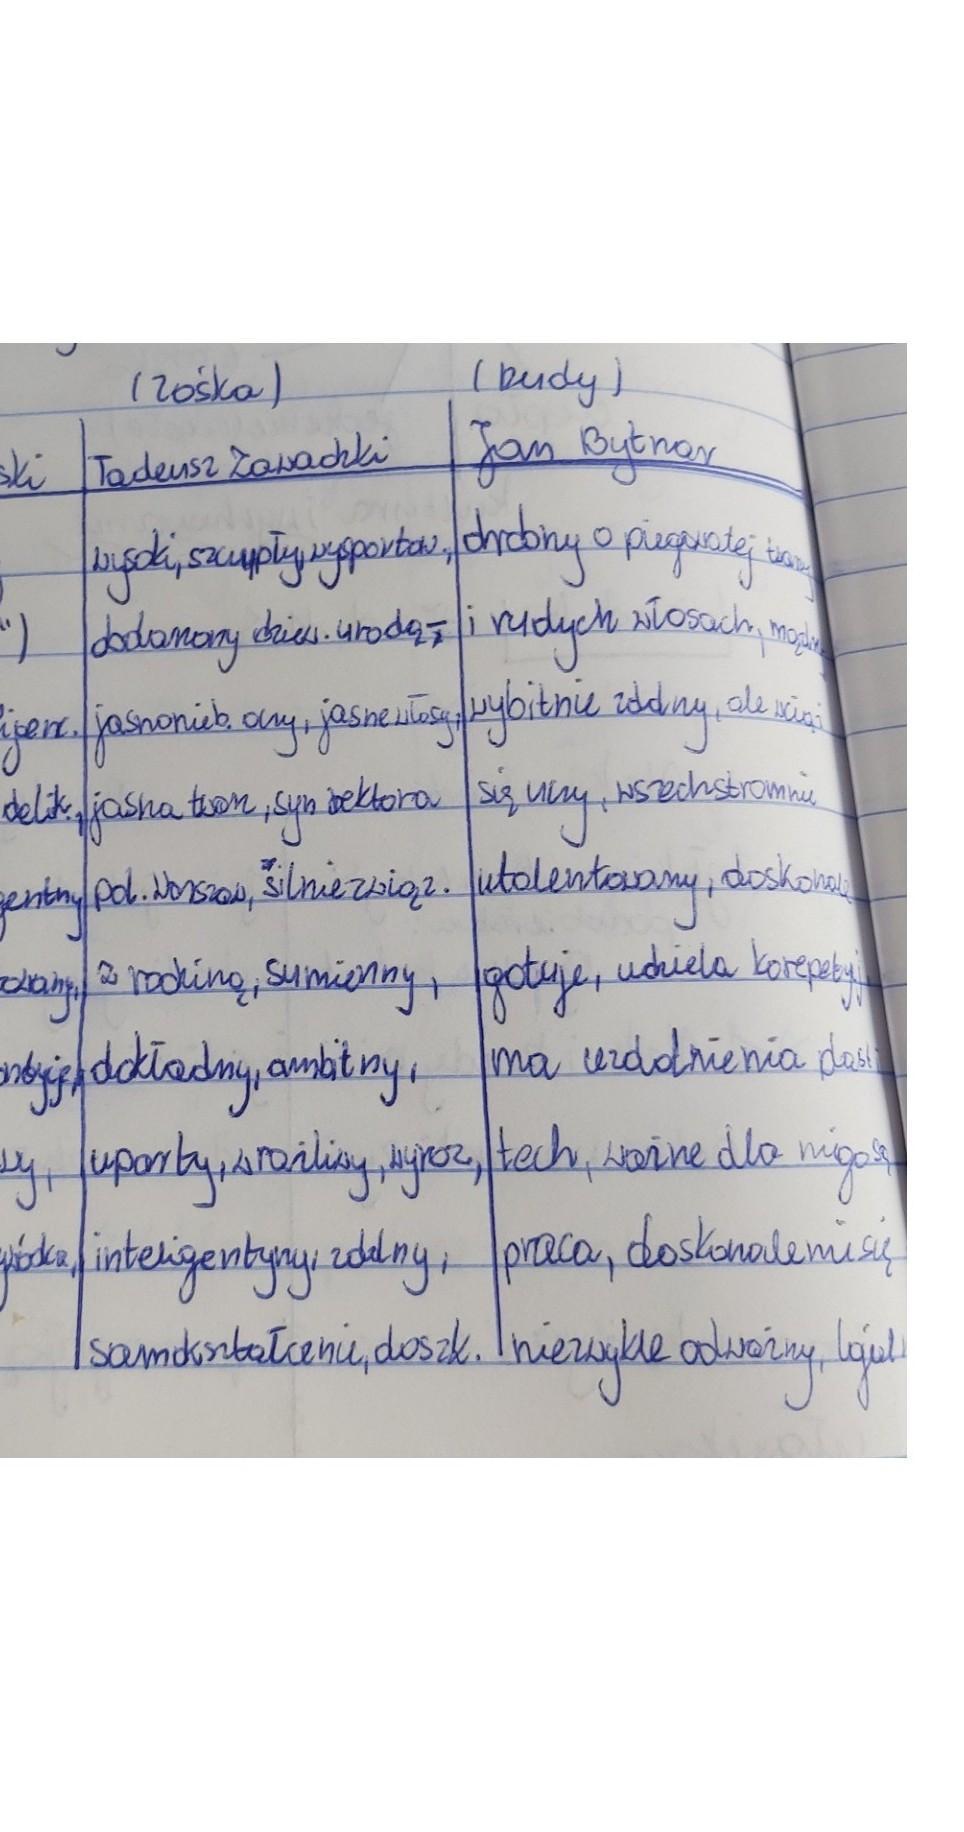 (Zośka) (Rudy)
ski Tadeusz Zawadzki Jan Bytnar
wysoki, szczupły, wysportow., drobny o piegowatej twarzy
") obdarowany dziew. urodą, i rudych włosach, mądry
ligen. jasnonieb. oczy, jasne włosy, wybitnie zdolny, ale wciąż
delik., jasna twarz, syn rektora się uczy, wszechstronnie
gentny pol. Warszaw, silnie związ. utalentowany, doskonale
z rodziną, sumienny, gotuje, udziela korepetycji
dokładny, ambitny, ma uzdolnienia plast
wy, uparty, wrażliwy, wyroz, tech, ważne dla niego są
inteligentyny, zdolny, praca, doskonalenie się
samokształcenie, doszk. niezwykle odważny, lojal